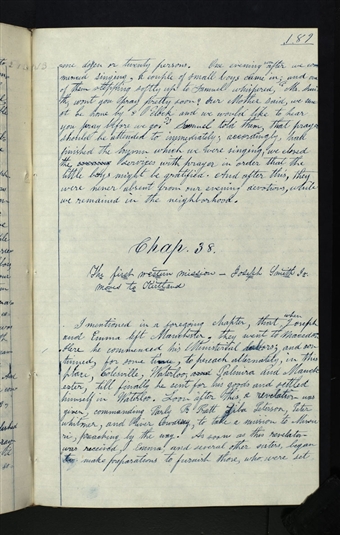 182
some dozen or twenty persons. One evening after we com
menced singing, a couple of small boys came in; and one
of them stepping softly up to Samuel whispered, Mr. Smi
th, wont you pray pretty soon? Our Mother said, we must
be home by 8 O'clock and we would like to hear
you pray before we go." Samuel told them, that prayer
should be attended to immediately; accordingly, had
finished the hymn which we were singing, we closed
the evening exercises with prayer in order that the
little boys might be gratified. And after this, they
were never absent from our evening devotions, while
we remained in the neighborhood.
Chap. 38.
The first western mission – Joseph Smith Jr.
moves to Kirtland
I mentioned in a foregoing chapter, that when Joseph
and Emma left Manchester, they went to Macedon
Here he commenced his Ministerial labors; and con
tinued, for some time, to preach alternately, in this
place, Colesville, Waterloo, and Palmira and Manch
ester, till finally he sent for his goods and settled
himself in Waterloo. Soon after this, a revelation was
given, commanding Parly P. Pratt Ziba Peterson, Peter
whitmer, and Oliver Cowdery, to take a mission to Misou
ri, preaching by the way. As soon as this revelation
was received, Emma, and several other sisters, began
to make preparations to furnish those, who were set